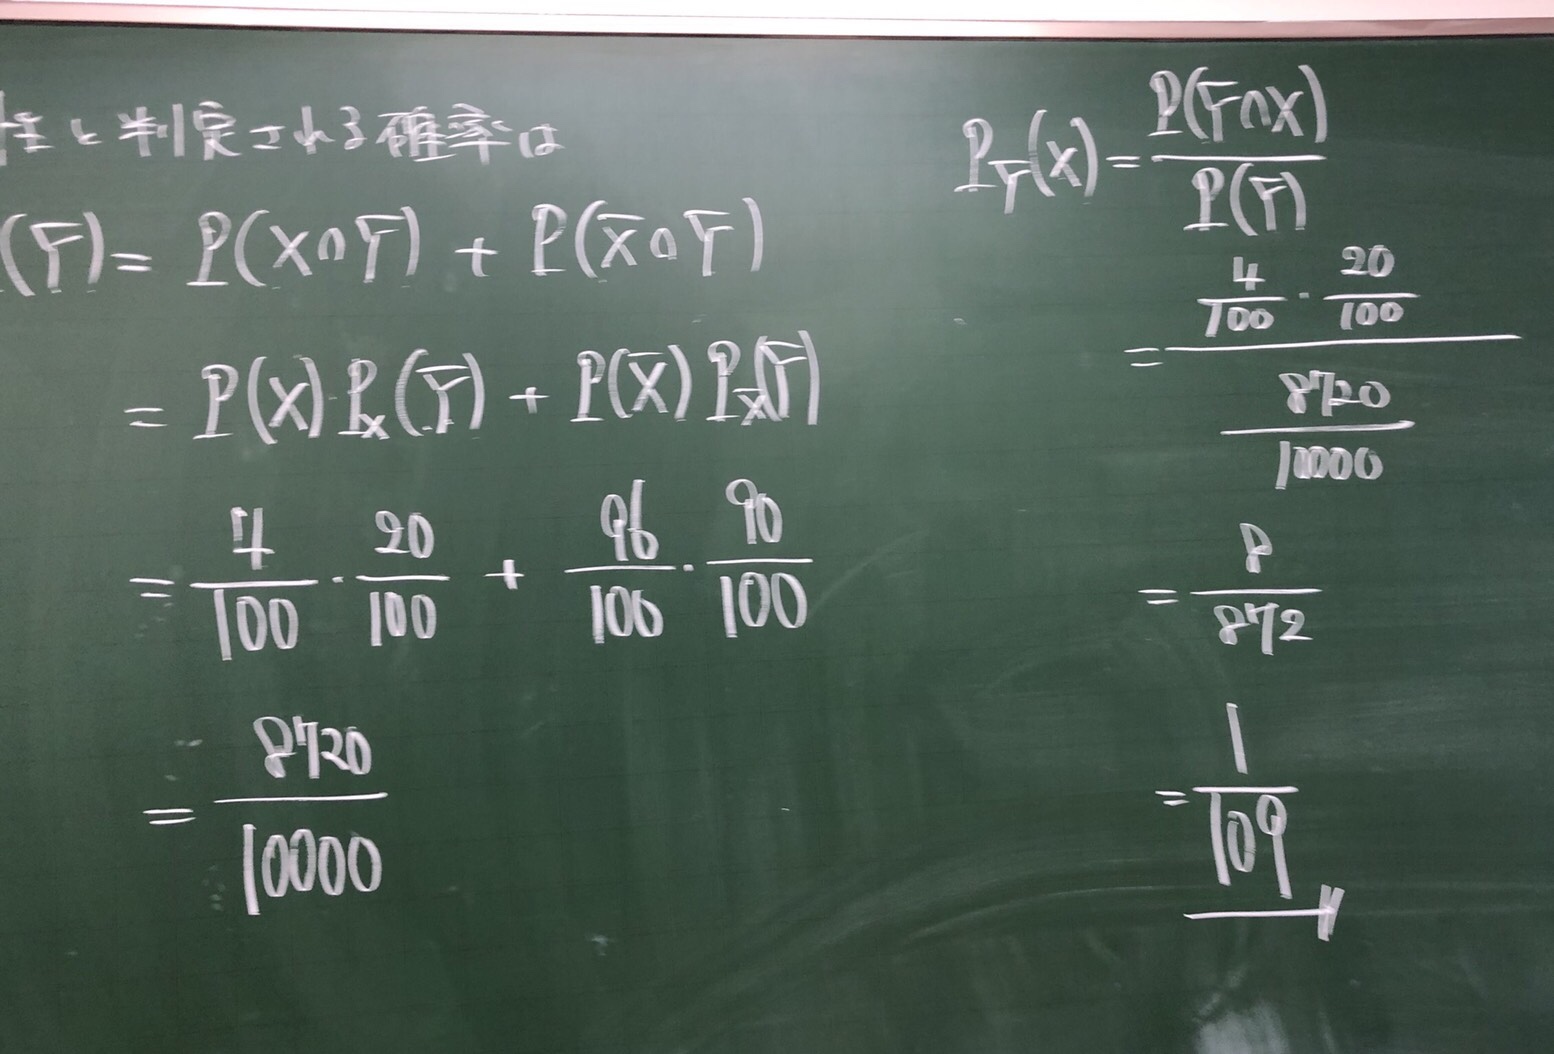 性と判定される確率は
(Ȳ) = P(X∩Ȳ) + P(X̄∩Ȳ)
= P(X)·Pₓ(Ȳ) + P(X̄) P_X̄(Ȳ)
= 4/100 · 20/100 + 96/100 · 90/100
= 8720/10000
P_Ȳ(X) = P(Ȳ∩X)/P(Ȳ)
= (4/100 · 20/100)/(8720/10000)
= 8/872
= 1/109